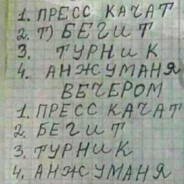 1. ПРЕСС КАЧАТ
2. Т) БЕГИТ
3. ТУРНИК
4. АНЖУМАНЯ
ВЕЧЕРОМ
1. ПРЕСС КАЧАТ
2. БЕГИТ
3. ТУРНИК
4. АНЖУМАНЯ